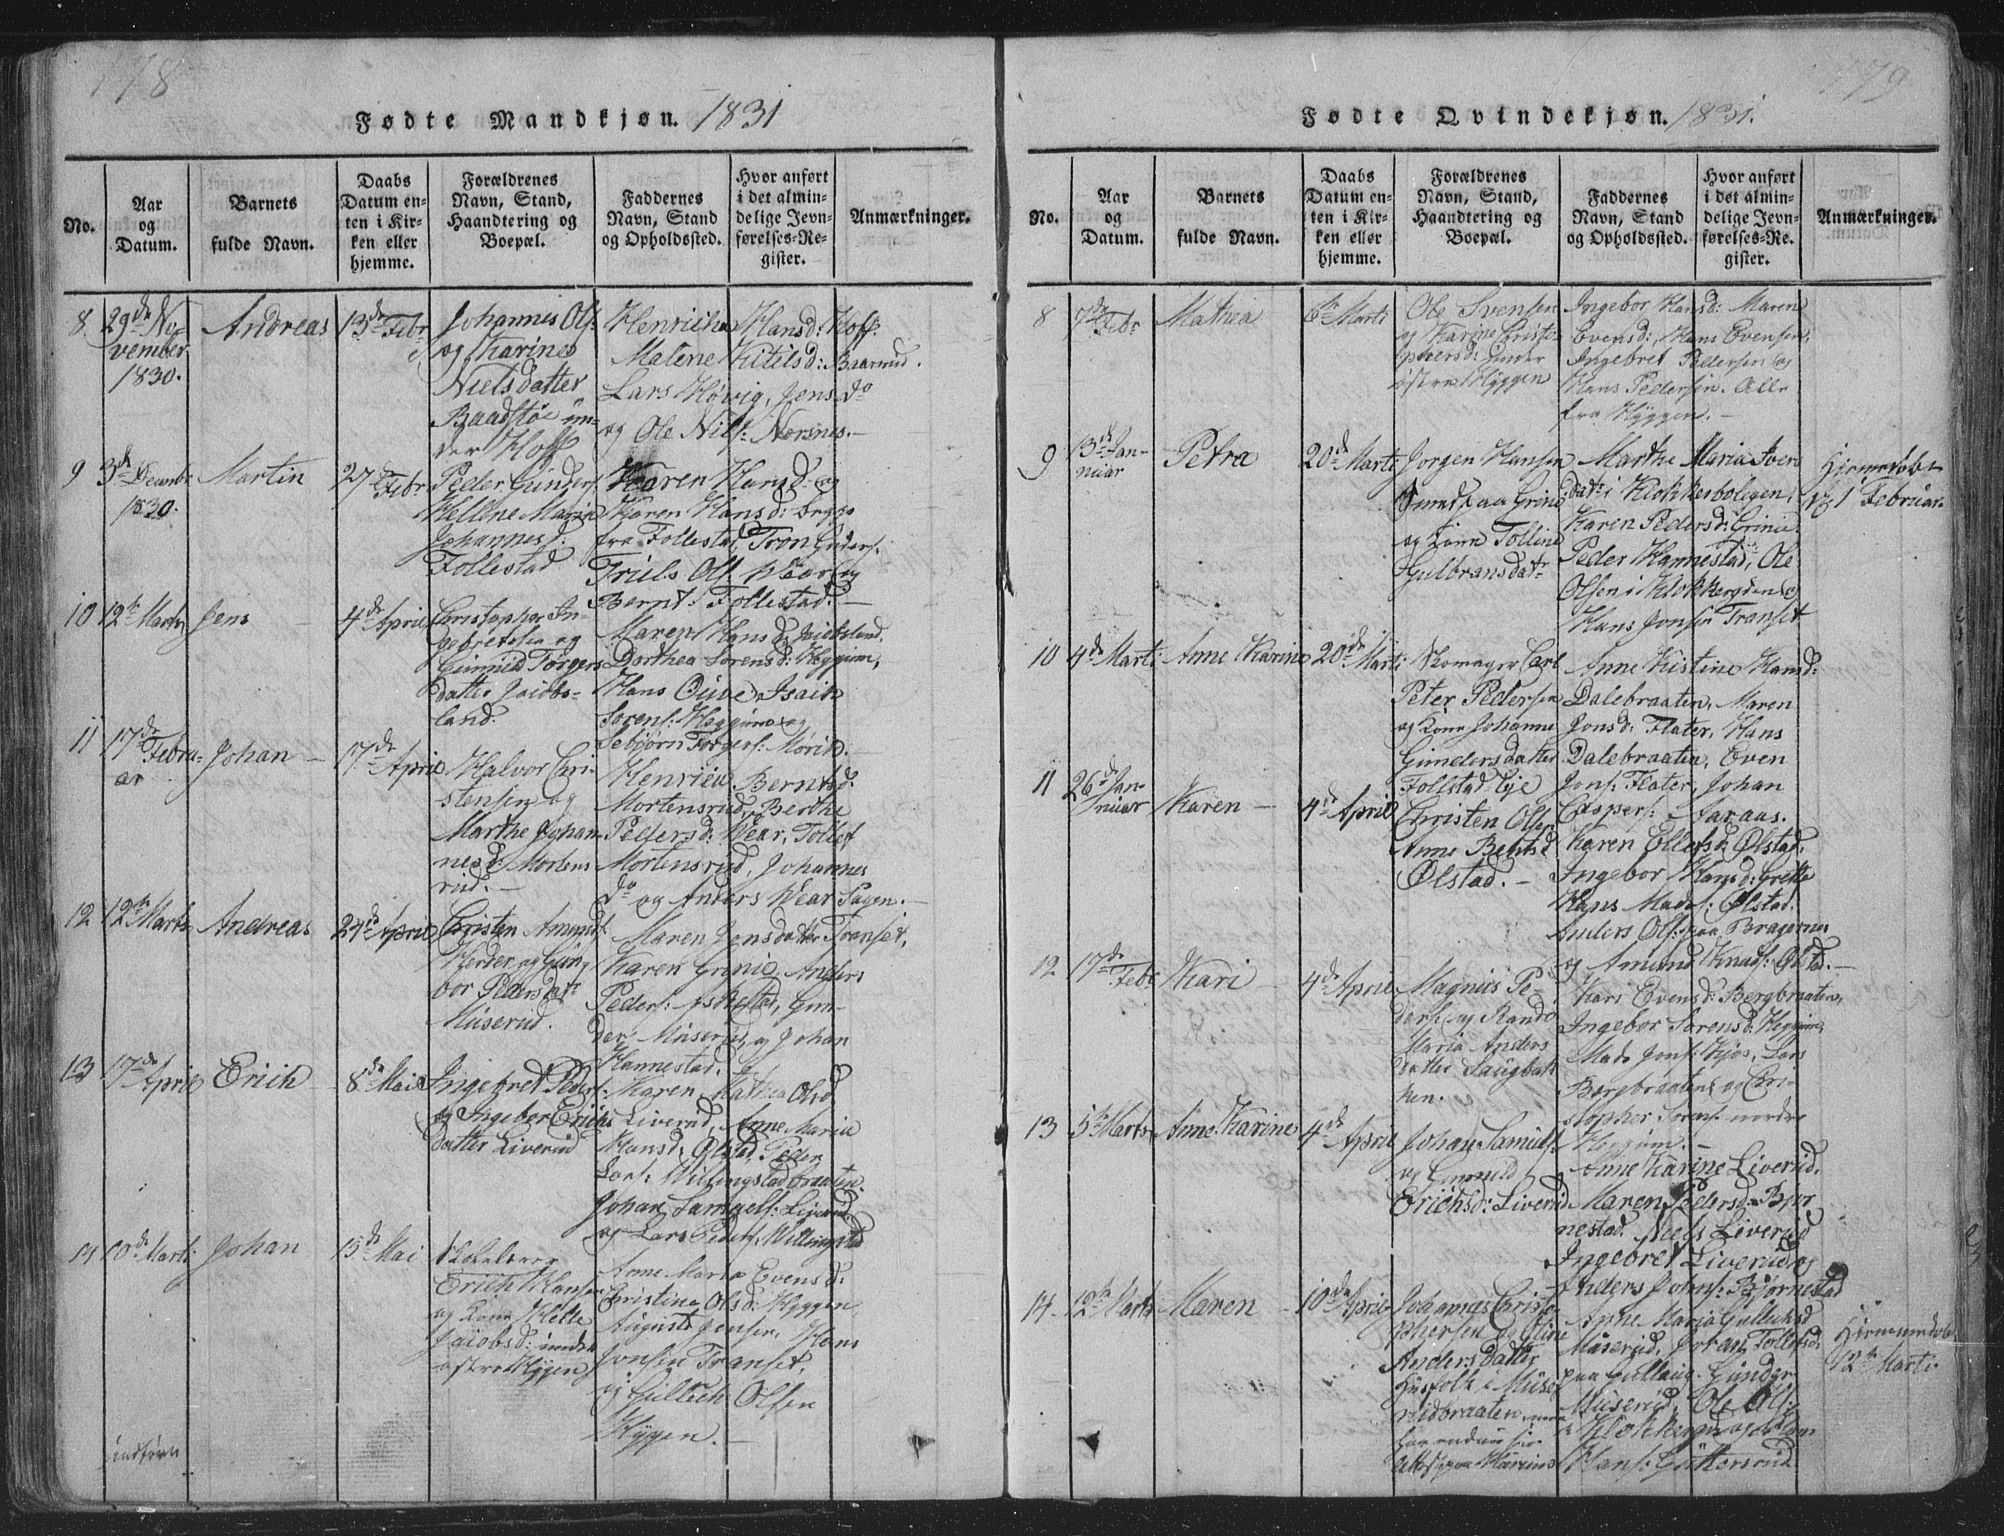 178
Fødte Mandkjøn. 1831
No.
Aar
og
Datum.
Barnets
fulde Navn.
Daabs
Datum en-
ten i Kir-
ken eller
hjemme.
Forældrenes
Navn, Stand,
Haandtering og
Boepæl.
Faddernes
Navn, Stand
og Opholdssted.
Hvor anført
i det almin-
delige Jevn-
førelses-Re-
gister.
Anmærkninger.
8
29de No-
vember
1830.
Andreas
13de Febr
Johannes Ols:
og Karine
Nielsdatter
Baadstøe un-
der Hoff
Henricha Hansd: Hoff:
Malene Kitilsd: Baarrud.
Lars Høvig, Jens do
og Ole Nils: Nærsnes.
9
3de Decembr
1830.
Martin
27de Febr
Peder Gunders:
Hellene Maria
Johannesd:
Follestad
Karen Hansd og
Karen Hansd: begge
fra Follestad, Tron Guders:
Triels Ols: Wear og
Bernt: Follestad.
10
12te Marts
Jens
4de April
Christopher In-
gebretsen og
Gunnild Torgers
datter Jacobs-
land.
Maren Hansd: Jacobsland,
Dorthea Sorensd: Heggum,
Hans Ouve, Isach
Sorens: Heggum og
Sebjørn Torgers: Mørk.
11
17de Febru-
ar
Johan
17de April
Halvor Chri-
stensen og
Marthe Johan-
nesd: Mortens
rud.
Henrica Berntsd:
Mortensrud, Berthe
Pedersd: Wear, Tollef
Mortensrud, Johannes
do og Anders Wear Sagen.
12
12te Marts
Andreas
24de April
Christen Amunds:
Herder og Gun-
bor Pedersdat:
Muserud.
Maren Jensdatter Transet,
Karen Grinie, Anders
Peders: Askestad, Gun-
der Muserud og Johan
Hannestad.
13
17de April
Erich
8de Mai
Ingebret Peders:
og Ingebor Erichs
datter Liverud
Karen Mathea Olsd
Liverud, Anne Maria
Hansd: Ølstad, Peder
Lars: Willingstadbraaten.
Johan Samuels: Liverud,
og Lars Peders: Willingstad
14
10de Marti
Johan
15de Mai
Erich Hansen
og Kone Helle
Jacobsd: under
østre Hyggen
Anne Maria Evensd:
Christina Olsd: Hyggen,
August Jensen, Hans
Jonsen Transet,
og Gullich Olsen
Hyggen.
indførn
179
Fødte Qvindekjøn. 1831.
No.
Aar
og
Datum.
Barnets
fulde Navn.
Daabs
Datum en-
ten i Kir-
ken eller
hjemme.
Forældrenes
Navn, Stand,
Haandtering og
Boepæl.
Faddernes
Navn, Stand
og Opholdsted.
Hvor anført
i det almin-
delige Jevn-
førelses-Re.
gister.
Anmærkninger.
8
7de Febr
Mathea
6te Marti
Ole Svensen
og Karine Christo-
phersd: under
østre Hyggen
Ingebor Hansd: Maren
Evensd:, Hans Evensen,
Ingebret Pedersen og
Hans Pedersen. Alle
fra Hyggen.
9
13de Jan-
nuar
Petra
20de Marti
Jorgen Hansen
Smed paa Grinie
og Kone Tolline
Gulbransdatr
Marthe Maria Iver
dat: i Klokkerboligen,
Karen Pedersd: Grinie
Peder Hannestad, Ole
Olsen i Klokkergden og
Hans Jonsen Transet
Hjemmedøbt
d 1 Februar.
10
4de Marti
Anne Karine
20de Marti
Skomager Carl
Peter Pedersen
og Kone Johanne
Gundersdatter
Follstad Eje
Anne Kistine Hansd:
Dalebraaten, Maren
Jonsd: Flater, Hans
Dalebraaten, Even
Jons: Flater, Johan
Caspers: Aaraas.
11
26de Jan-
nuar
Karen
4de April
Christen Olsen
Anne Behtsd
Ølstad.
Karen Ellefsd: Ølstad,
Ingebor Hansd: Grette
Hans Mads: Ølstad.
Anders Ols: paa Bragernes
og Amund Knuds: Ølstad.
12
17de Febr
Kari
4de April
Magnus Pe-
ders: og Randi
Maria Anders
datter Saugbak-
ken.
Kari Evensd: Bergbraaten,
Ingebor Sorensd: Heggum,
Mads Jons: Kjos, Lars
Bergbraaten og Chri-
stopher Sorens: nordre
Heggum.
13
5te Marts
Anne Karine
4de April
Johan Samuels:
og Gunnild
Erichsd: Liverud
Anne Karine Liverud,
Maren Pedersd: Bjør-
nestad. Niels Liverud
Ingebret Liverud og
Anders Johns: Bjørnestad
14
12te Marts
Maren
10de April
Johannes Christo-
phersen og Eline
Andersdatter
Husfolk i Muse-
rudbraaten
Anne Maria Gullichsd
Muserud, Johan Tollefsd:
paa Gullaug. Gunder
Muserud, Ole Ols:
i Klokkergd og
Hans: Guttersrud
Hjemmedøbt
12te Marti.